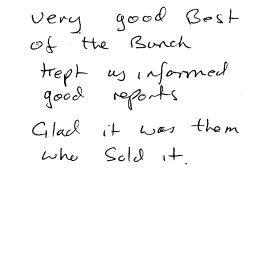 very good Best
of the Bunch
Kept us informed
good reports
Glad it was them
who Sold it.